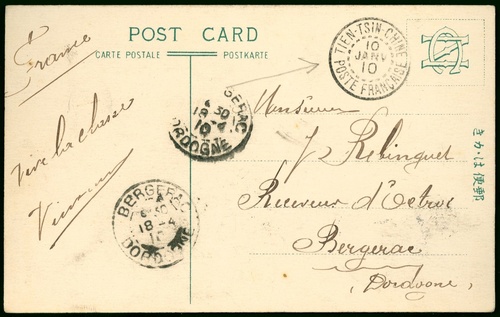 POST CARD
CARTE POSTALE
POSTKARTE
TIEN-TSIN-CHINE
10
JANV
10
POSTE FRANÇAISE
France
Vive la classe
GERAC
30
10
DORDOGNE
BERGERAC
18-4
10
DORDOGNE
Monsieur
J Rebinguet
Receveur d'Octroi
Bergerac
(Dordogne)
きかは便郵